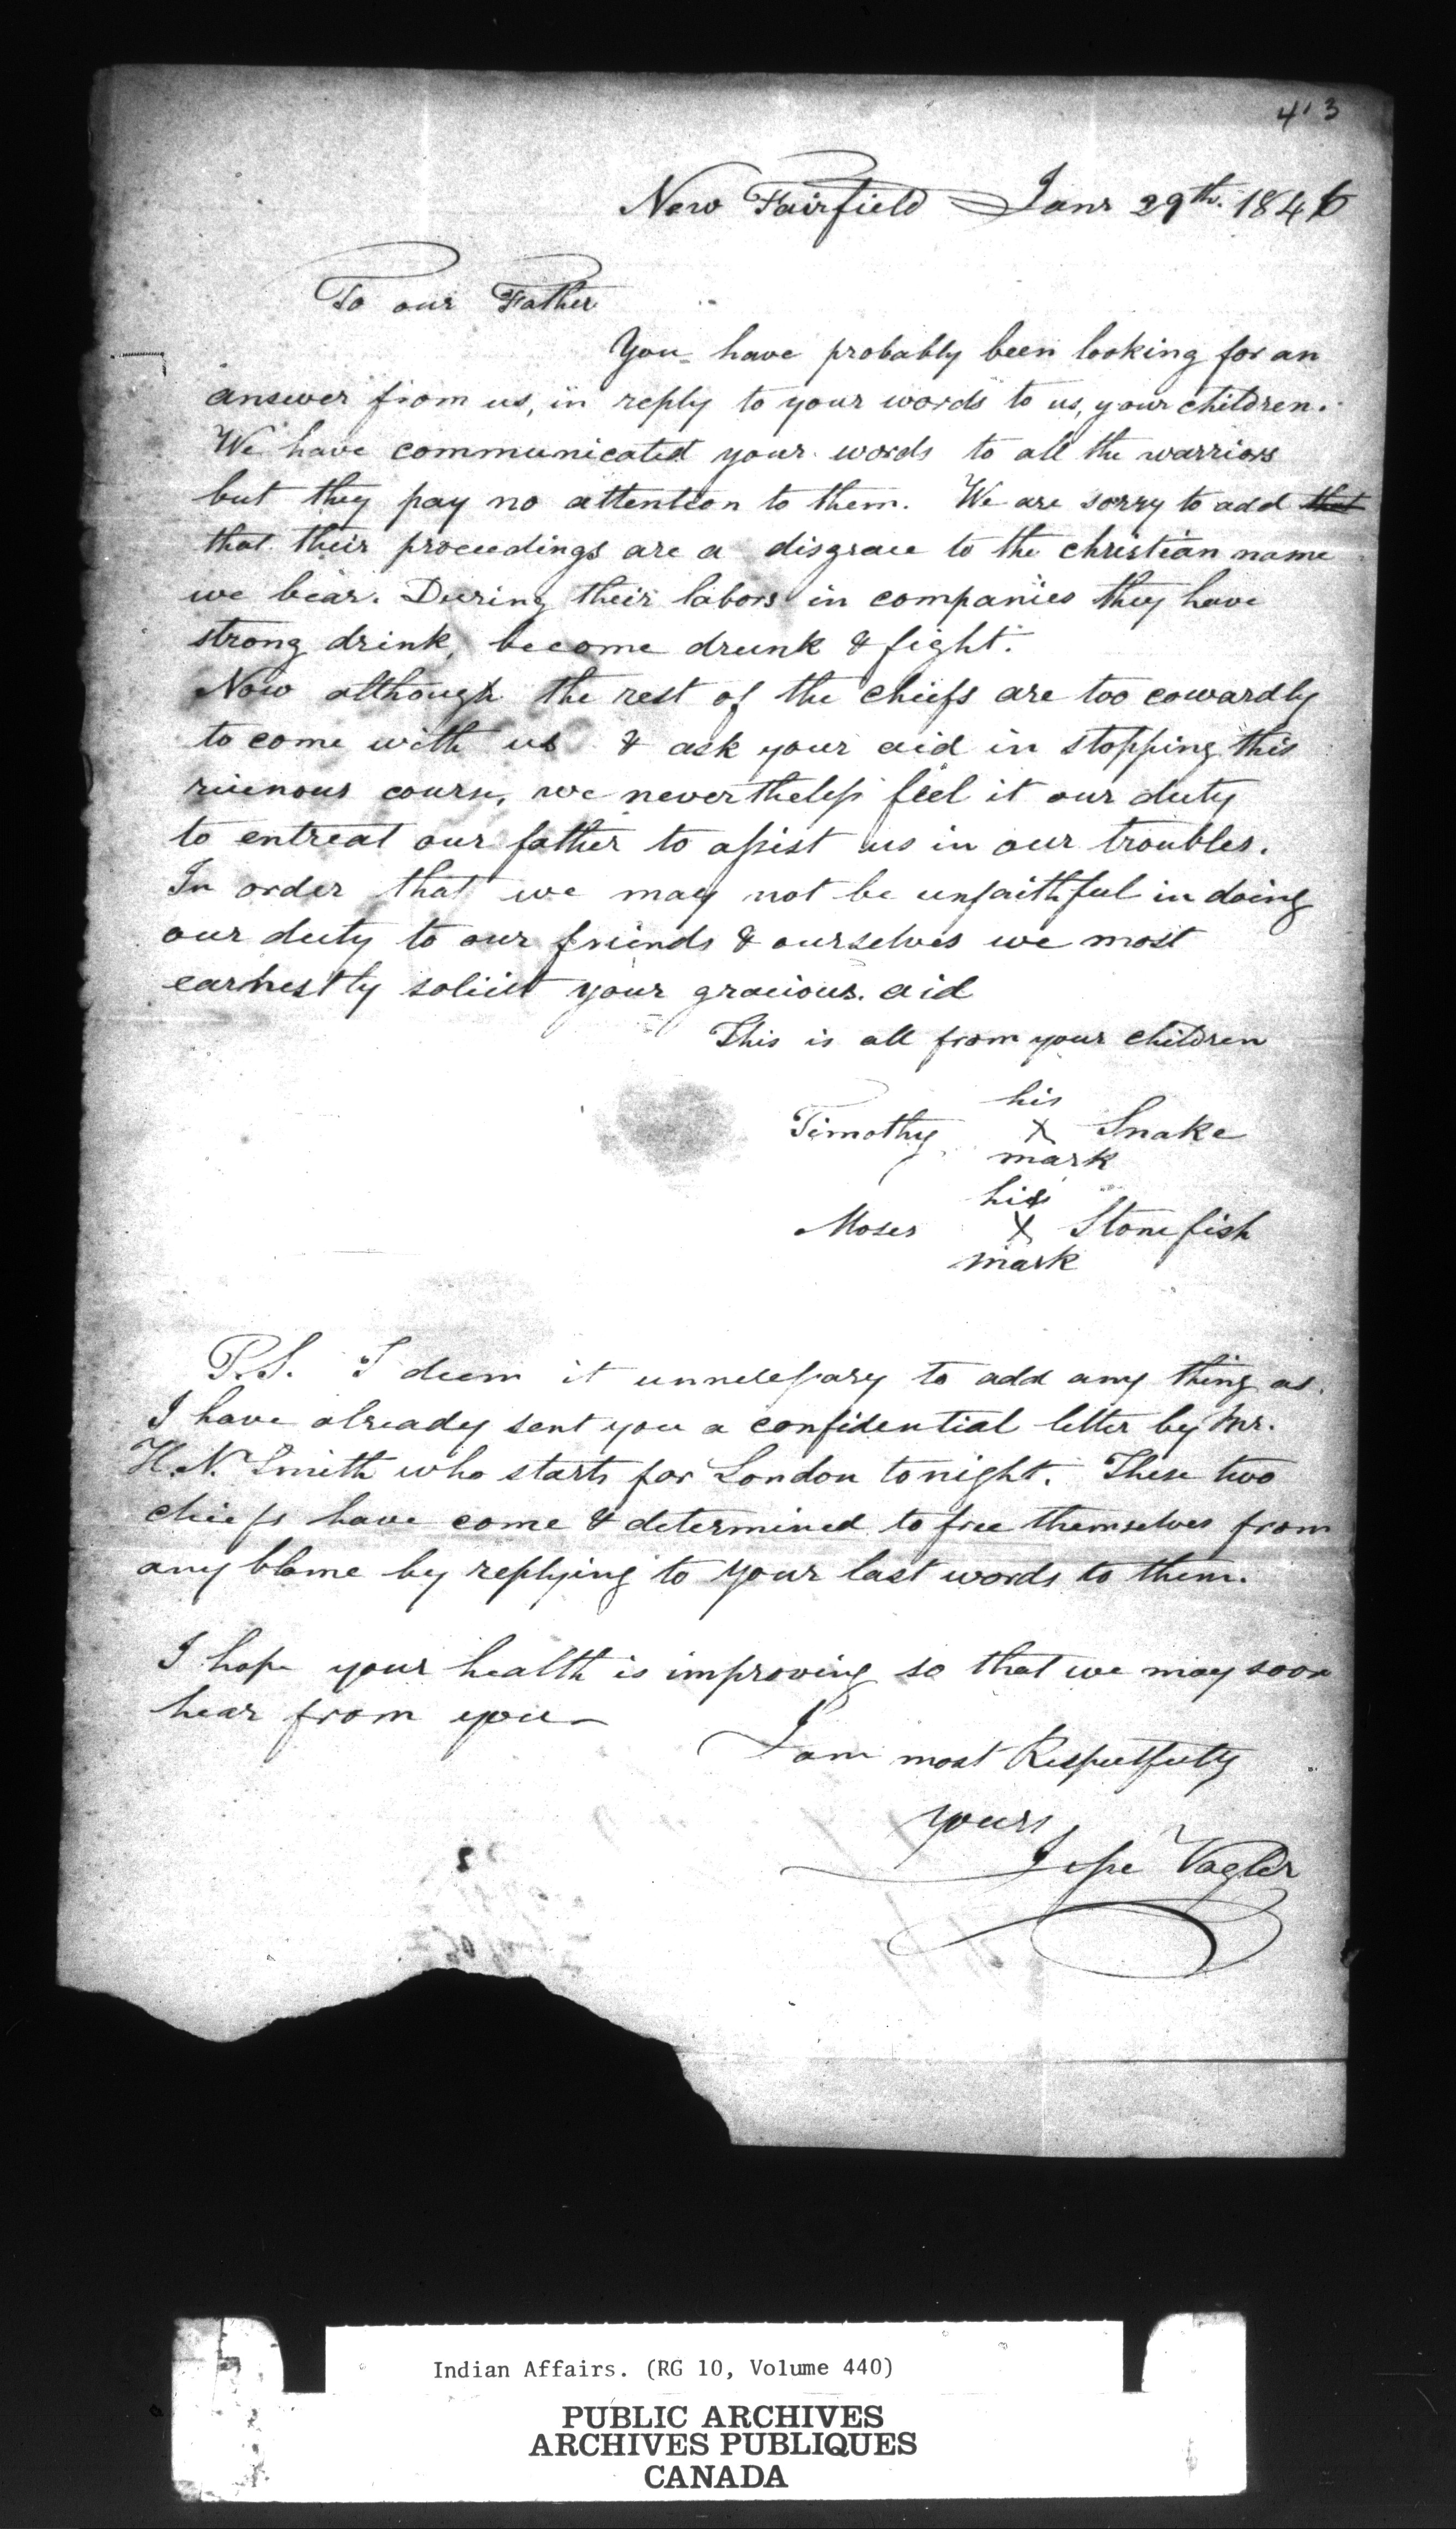 413
New Fairfield Janr 29th. 1846
To our Father
You have probably been looking for an
answer from us, in reply to your words to us, your children.
We have communicated your words to all the warriors
but they pay no attention to them. We are sorry to add that
that their proceedings are a disgrace to the christian name
we bear. During their labors in companies they have
strong drink, become drunk & fight.
Now although the rest of the chiefs are too cowardly
to come with us & ask your aid in stopping this
ruinous course, we nevertheless feel it our duty
to entreat our father to assist us in our troubles.
In order that we may not be unfaithful in doing
our duty to our friends & ourselves we most
earnestly solicit your gracious aid
This is all from your children
his
Timothy X Snake
mark
his
Moses X Stonefish
mark
P.S. I deem it unnecessary to add any thing as
I have already sent you a confidential letter by Mr.
H.N. Smith who starts for London tonight. These two
chiefs have come & determined to free themselves from
any blame by replying to your last words to them.
I hope your health is improving so that we may soon
hear from you
I am most Respectfully
yours
Jesse Vogler
Indian Affairs. (RG 10, Volume 440)
PUBLIC ARCHIVES
ARCHIVES PUBLIQUES
CANADA